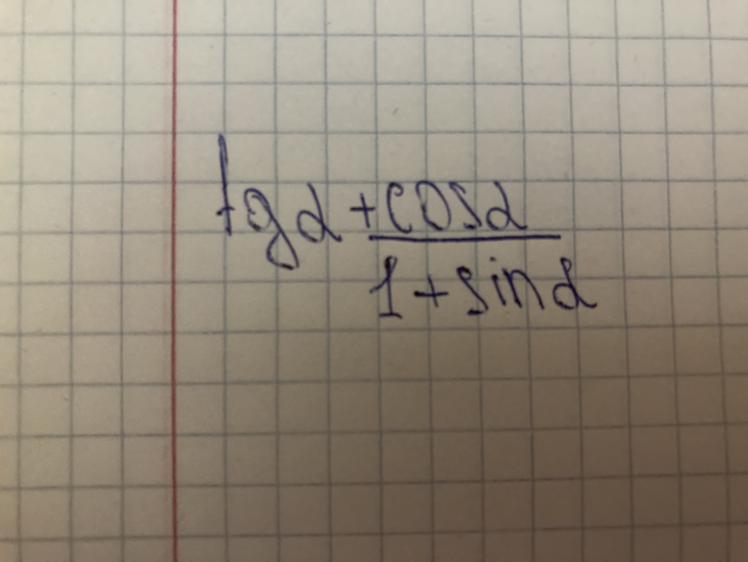 tgα + cosα
1 + sinα